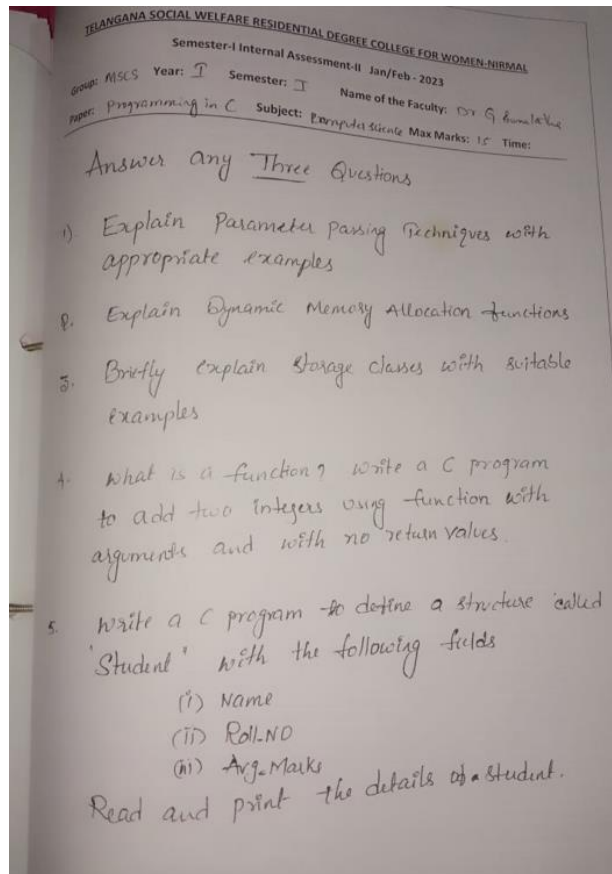 TELANGANA SOCIAL WELFARE RESIDENTIAL DEGREE COLLEGE FOR WOMEN-NIRMAL
Semester-I Internal Assessment-II Jan/Feb - 2023
Group: MSCS Year: I Semester: I Name of the Faculty: Dr G
Paper: Programming in C Subject: Computer Science Max Marks: 15 Time:
Answer any Three Questions
1). Explain Parameter Passing Techniques with
appropriate examples
2. Explain Dynamic Memory Allocation functions
3. Briefly explain storage classes with suitable
examples
4. What is a function? Write a C program
to add two integers using function with
arguments and with no return values.
5. Write a C program to define a structure called
"Student" with the following fields
(i) Name
(ii) Roll-NO
(iii) Avg-Marks
Read and print the details of a student.